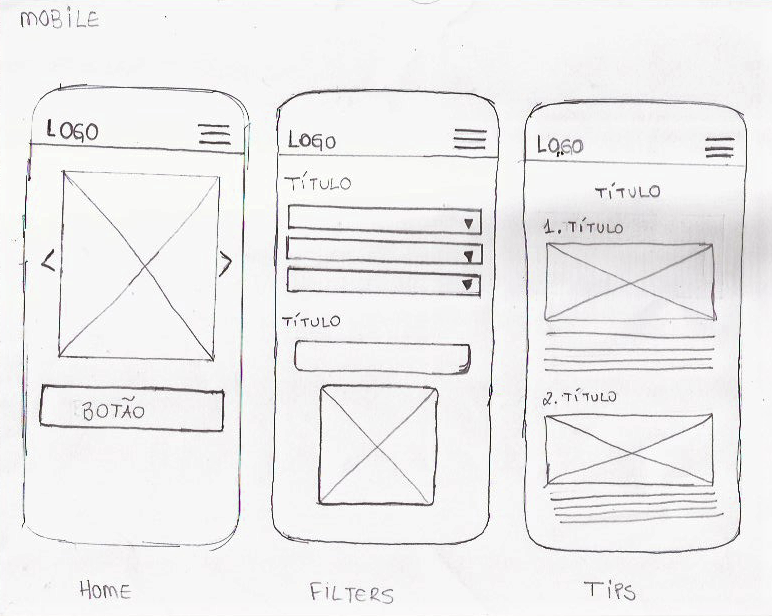 MOBILE
LOGO
BOTÃO
HOME
LOGO
TÍTULO
TÍTULO
FILTERS
LOGO
TÍTULO
1. TÍTULO
2. TÍTULO
TIPS